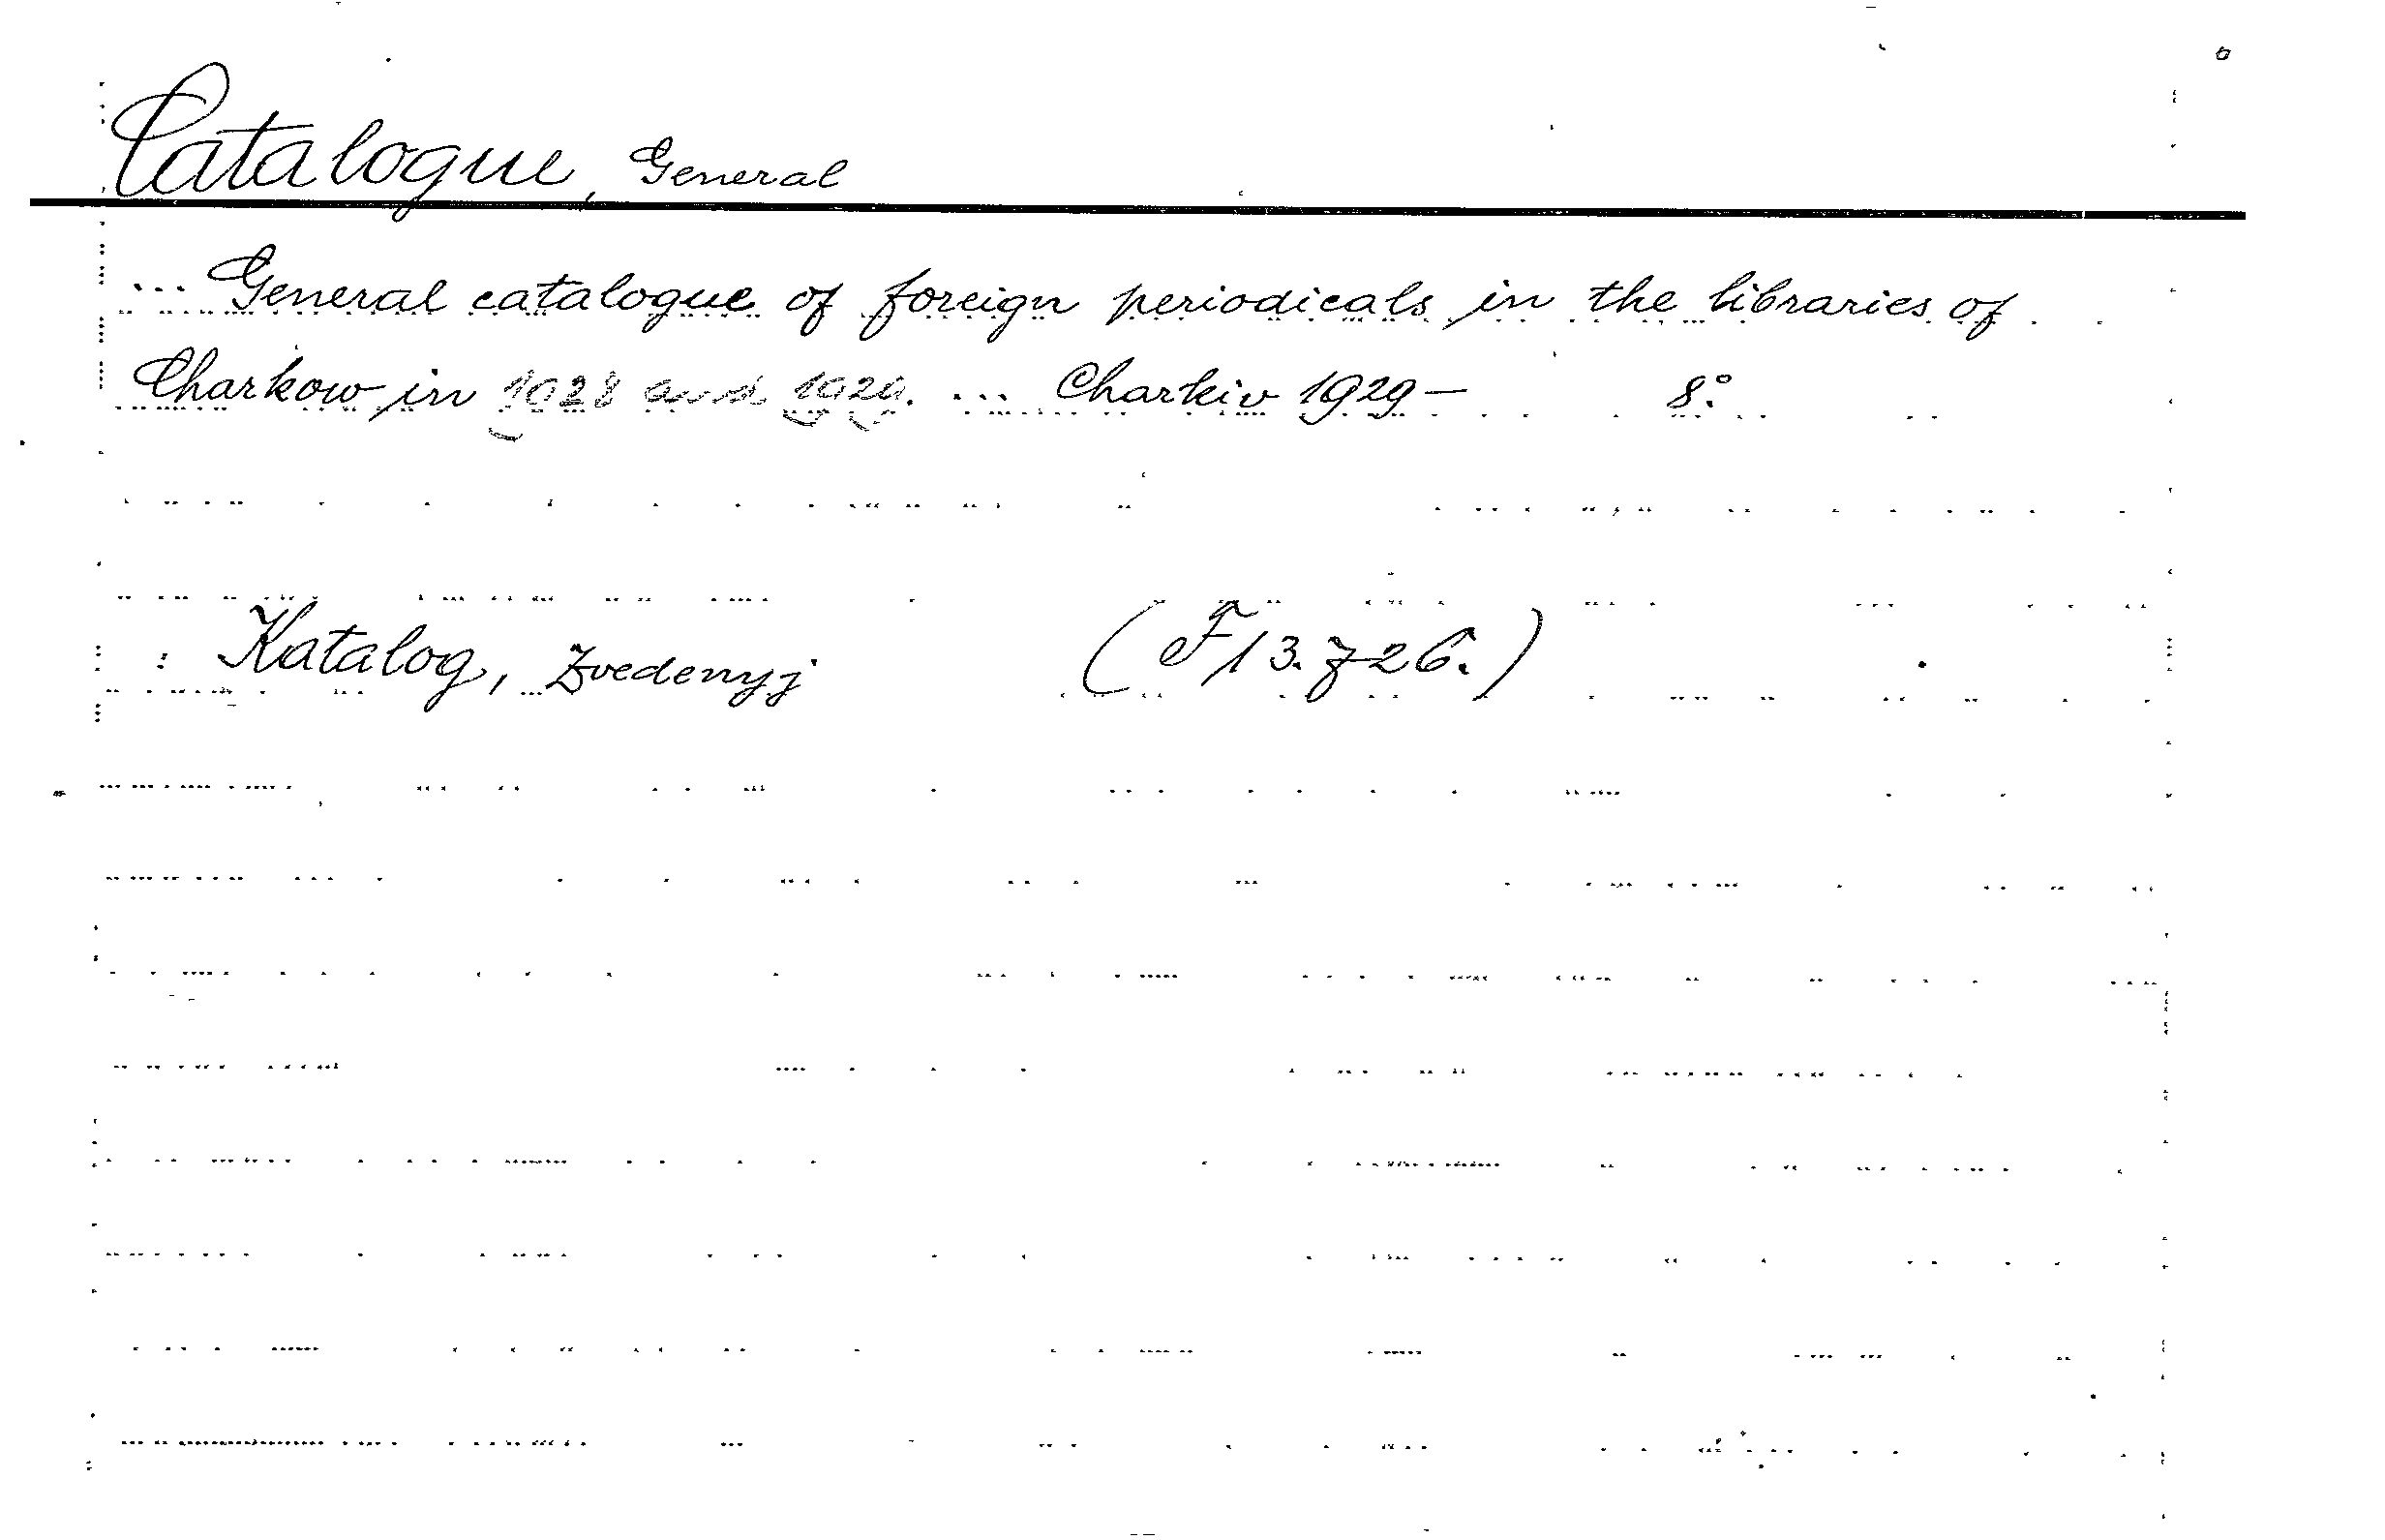 Catalogue, General
... General catalogue of foreign periodicals in the libraries of
Charkow in 1928 and 1929. ... Charkiv 1929— 8:o
: Katalog, Zvedenyj (F13.726.)